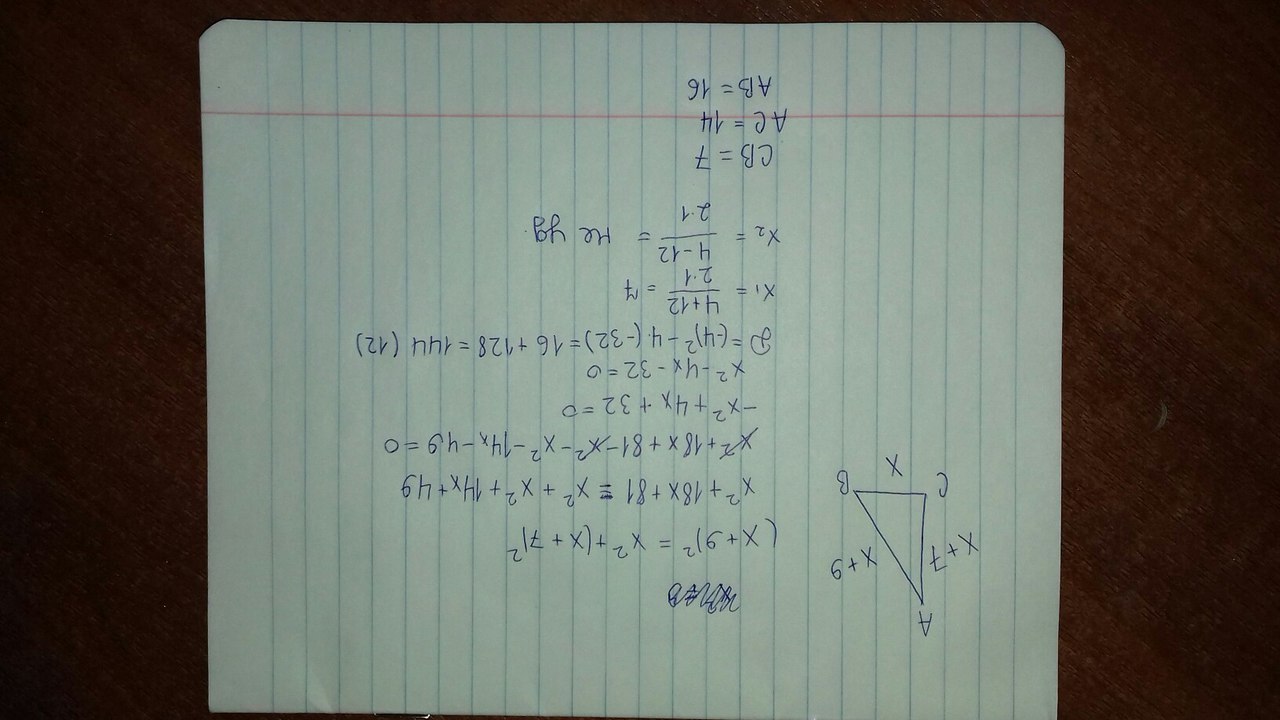 A
x+7
x+9
C
B
x
(x+9)² = x² + (x+7)²
x² + 18x + 81 = x² + x² + 14x + 49
x² + 18x + 81 - x² - x² - 14x - 49 = 0
-x² + 4x + 32 = 0
x² - 4x - 32 = 0
D = (-4)² - 4·(-32) = 16 + 128 = 144 (12)
x₁ = (4+12)/(2·1) = 7
x₂ = (4-12)/(2·1) = не уд.
CB = 7
AC = 14
AB = 16